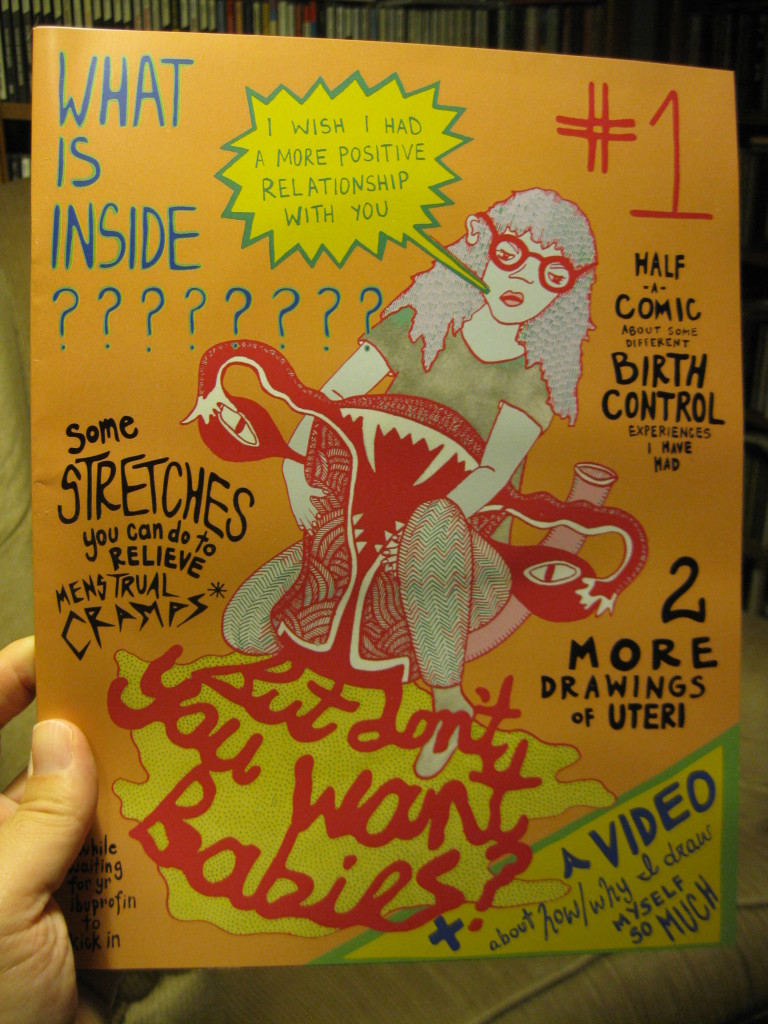 WHAT
IS
INSIDE
????????
I WISH I HAD
A MORE POSITIVE
RELATIONSHIP
WITH YOU
#1
HALF
-A-
COMIC
ABOUT SOME
DIFFERENT
BIRTH
CONTROL
EXPERIENCES
I HAVE
HAD
Some
STRETCHES
you can do to
RELIEVE
MENSTRUAL
CRAMPS*
2
MORE
DRAWINGS
OF UTERI
But don't
You want
Babies?
*while
waiting
for yr
ibuprofin
to
kick in
+ A VIDEO
about how/why I draw
MYSELF
SO MUCH